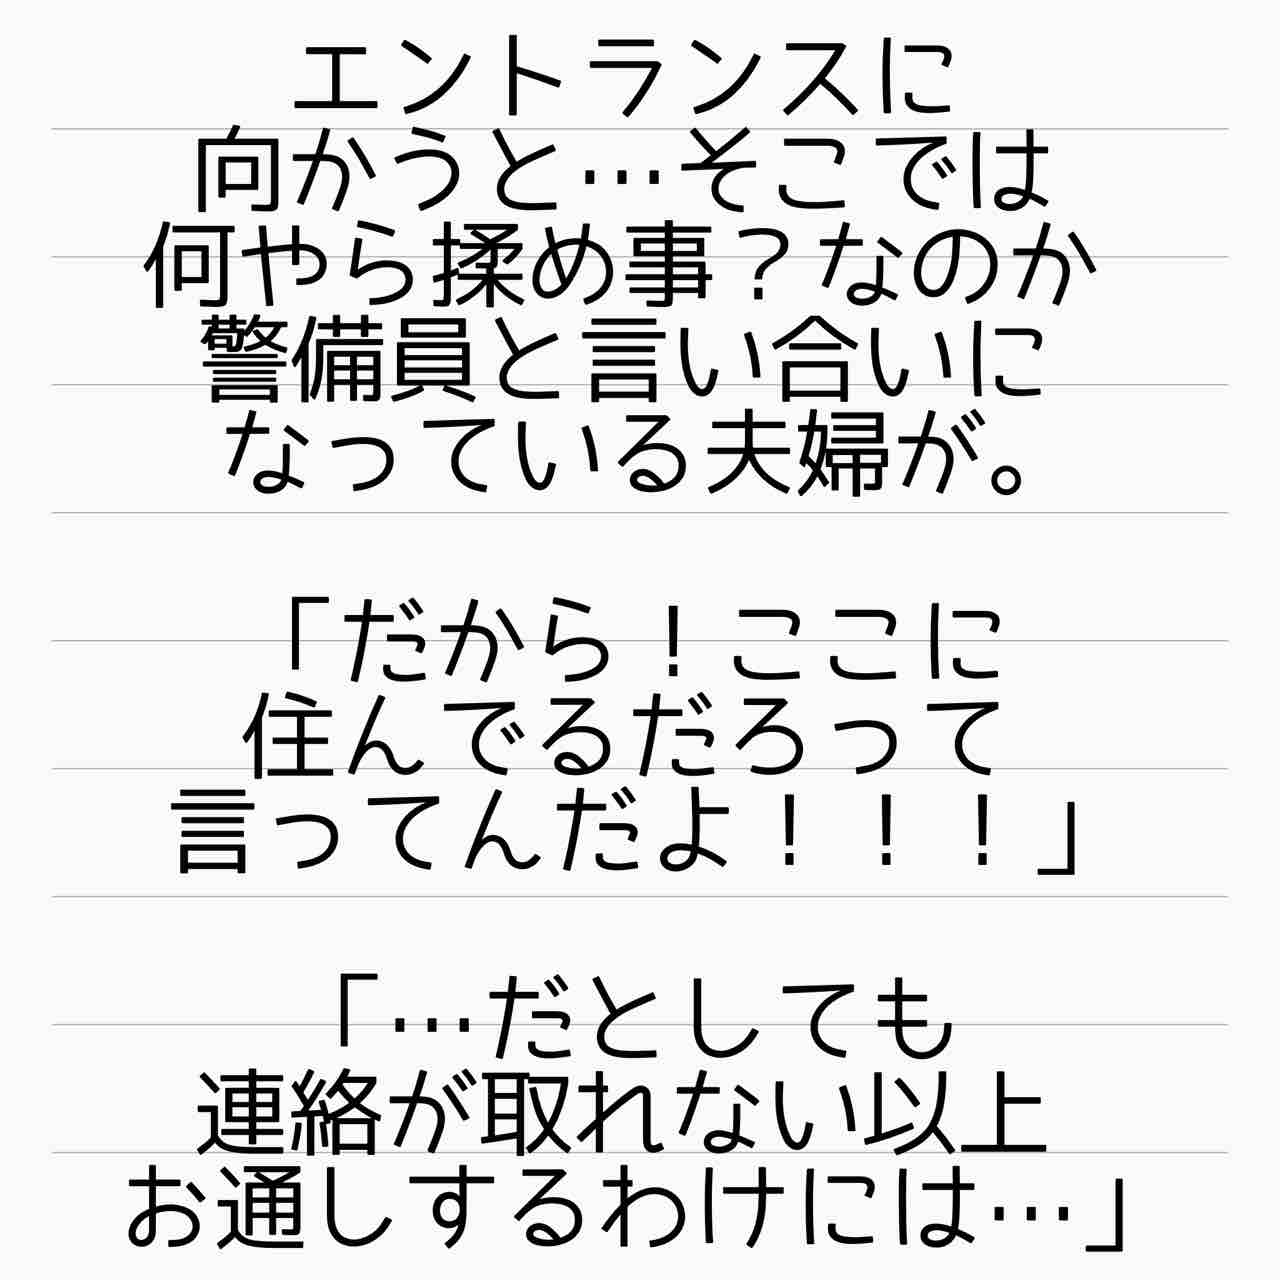 エントランスに
向かうと…そこでは
何やら揉め事？なのか
警備員と言い合いに
なっている夫婦が。
「だから！ここに
住んでるだろって
言ってんだよ！！！」
「…だとしても
連絡が取れない以上
お通しするわけには…」